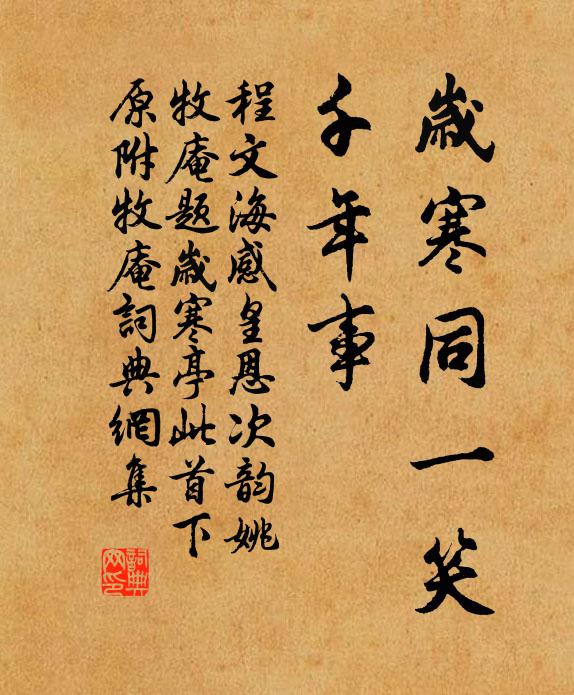 歲寒同一笑
千年事
程文海感皇恩次韵姚
牧庵題歲寒亭此首下
原附牧庵詞典網集
詞典网印